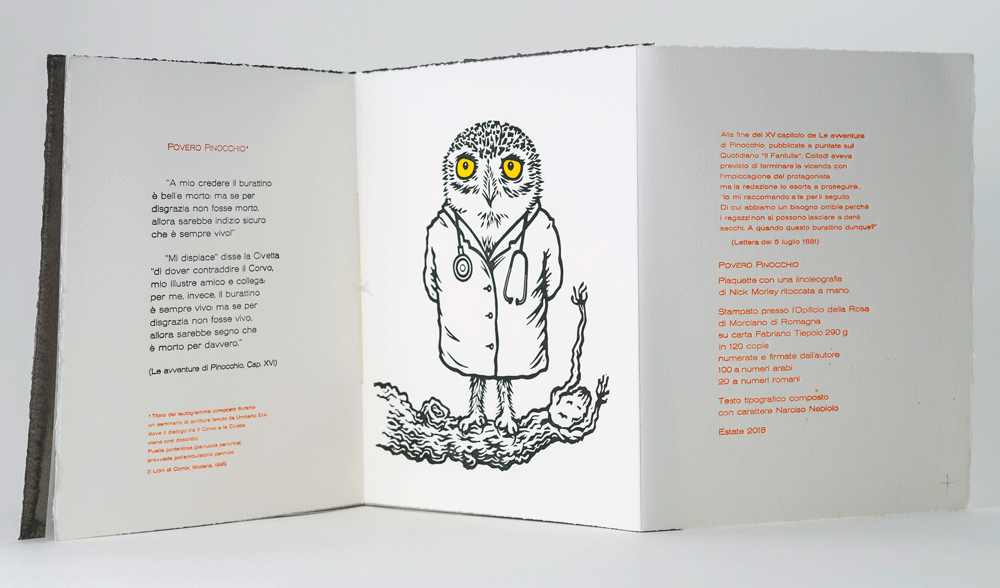 POVERO PINOCCHIO*
"A mio credere il burattino
è bell'e morto: ma se per
disgrazia non fosse morto,
allora sarebbe indizio sicuro
che è sempre vivo!"
"Mi dispiace" disse la Civetta
"di dover contraddire il Corvo,
mio illustre amico e collega:
per me, invece, il burattino
è sempre vivo: ma se per
disgrazia non fosse vivo,
allora sarebbe segno che
è morto per davvero."
(Le avventure di Pinocchio, Cap. XVI)
* Titolo del tautogramma composto durante
un seminario di scrittura tenuto da Umberto Eco,
dove il dialogo tra il Corvo e la Civetta
viene così descritto:
Puella portentosa (parrucca pervinca)
provvede poliambulatorio pennuto
(I Libri di Comix, Modena, 1995)
Alla fine del XV capitolo de Le avventure
di Pinocchio, pubblicate a puntate sul
Quotidiano "Il Fanfulla", Collodi aveva
previsto di terminare la vicenda con
l'impiccagione del protagonista
ma la redazione lo esorta a proseguire...
"Io mi raccomando a te per il seguito.
Di cui abbiamo un bisogno orribile perché
i ragazzi non si possono lasciare a denti
secchi. A quando questo burattino dunque?"
(Lettera del 5 luglio 1881)
POVERO PINOCCHIO
Plaquette con una linoleografia
di Nick Morley ritoccata a mano.
Stampato presso l'Opificio della Rosa
di Morciano di Romagna
su carta Fabriano Tiepolo 290 g
in 120 copie
numerate e firmate dall'autore
100 a numeri arabi
20 a numeri romani
Testo tipografico composto
con carattere Narciso Nebiolo
Estate 2018